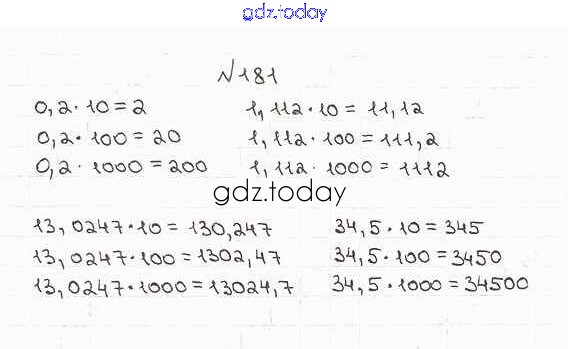 gdz.today
№181
0,2·10=2
0,2·100=20
0,2·1000=200
1,112·10=11,12
1,112·100=111,2
1,112·1000=1112
gdz.today
13,0247·10=130,247
13,0247·100=1302,47
13,0247·1000=13024,7
34,5·10=345
34,5·100=3450
34,5·1000=34500